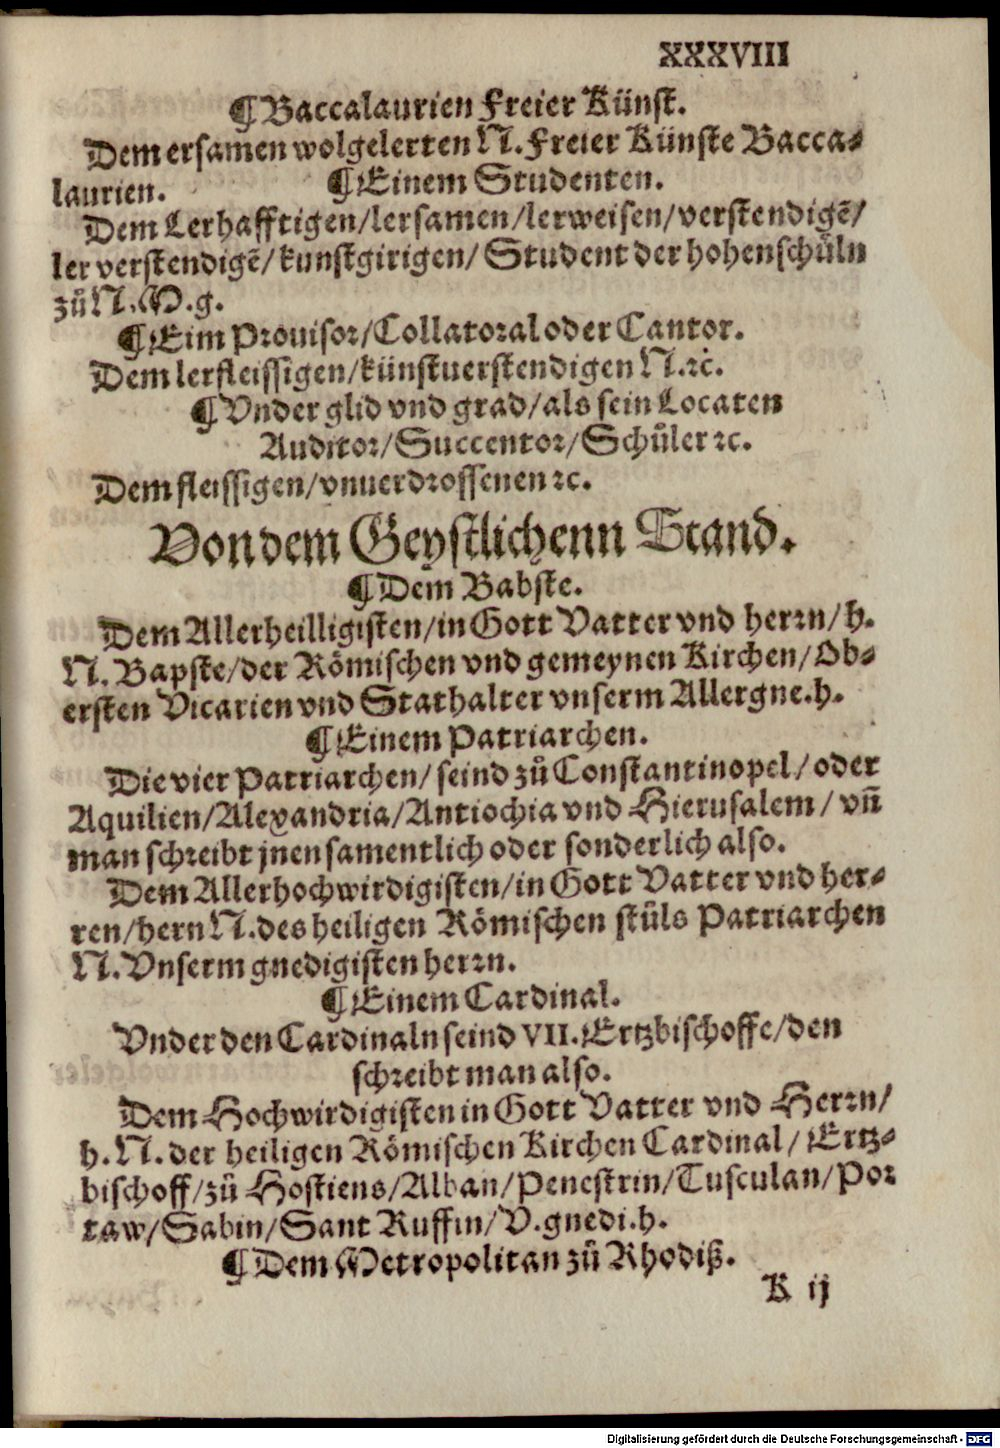 XXXVIII
¶ Baccalaurien Freier Künst.
Dem ersamen wolgelerten N. Freier Künste Bacca-
laurien. ¶ Einem Studenten.
Dem Lerhafftigen/lersamen/lerweisen/verstendigẽ/
ler verstendigẽ/kunstgirigen/ Student der hohenschůln
zů N. M. g.
¶ Eim Prouisor/Collatoral oder Cantor.
Dem lerfleissigen/künstuerstendigen N. ꝛc̄.
¶ Vnder glid vnd grad/als sein Locaten
Auditor/Succentor/Schůler ꝛc.
Dem fleissigen/vnuerdrossenen ꝛc.
Von dem Geystlichenn Stand.
¶ Dem Babste.
Dem Allerheilligisten/in Gott Vatter vnd herrn/h.
N. Bapste/der Römischen vnd gemeynen Kirchen/Ob-
ersten Vicarien vnd Stathalter vnserm Allergne.h.
¶ Einem Patriarchen.
Die vier Patriarchen/ seind zů Constantinopel/oder
Aquilien/Alexandria/Antiochia vnd Hierusalem/ vñ
man schreibt jnen samentlich oder sonderlich also.
Dem Allerhochwirdigisten/in Gott Vatter vnd her-
ren/hern N. des heiligen Römischen stůls Patriarchen
N. Vnserm gnedigisten herrn.
¶ Einem Cardinal.
Vnder den Cardinaln seind VII. Ertzbischoffe/den
schreibt man also.
Dem Hochwirdigisten in Gott Vatter vnd Herrn/
h. N. der heiligen Römischen Kirchen Cardinal/ Ertz-
bischoff/zů Hostiens/Alban/Penestrin/Tusculan/Por
taw/Sabin/Sant Ruffin/V. gnedi.h.
¶ Dem Metropolitan zů Rhodiß.
K ij
Digitalisierung gefördert durch die Deutsche Forschungsgemeinschaft - DFG